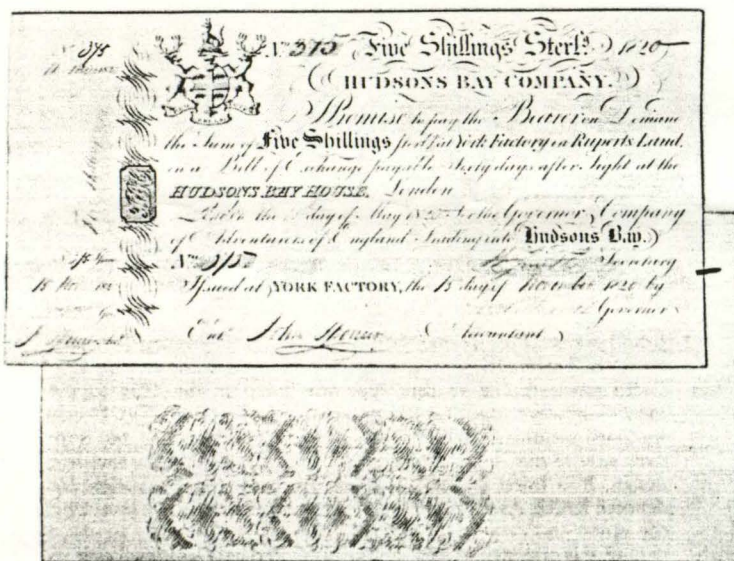 375
No. 375 Five Shillings Sterlg. 1820
HUDSONS BAY COMPANY.
Promise to pay the Bearer on Demand
the Sum of Five Shillings Sterl. at York Factory in Ruperts Land,
in a Bill of Exchange payable Sixty days after Sight at the
HUDSONS BAY HOUSE, London
London the day of May 1820 For the Governor & Company
of Adventurers of England Trading into Hudsons Bay.
No. 375 Secretary
15 Issued at YORK FACTORY, the 15 day of November 1820 by
Governor
Entd. John Spencer Accountant